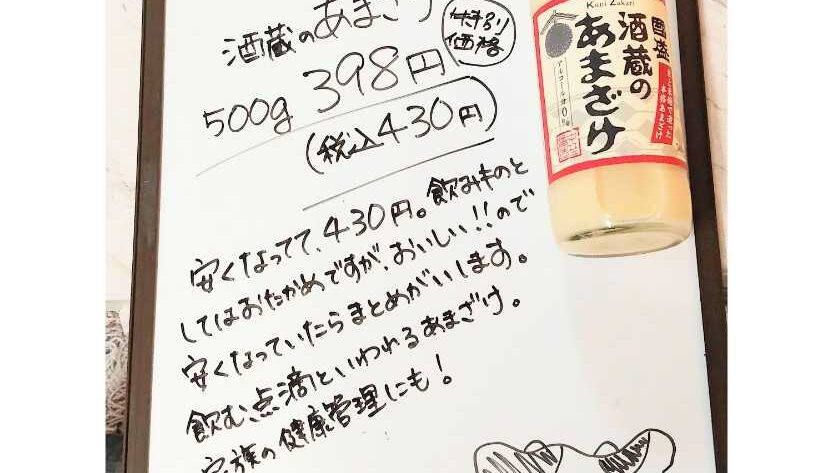 酒蔵のあまざけ
特別
価格
500g 398円
(税込430円)
安くなってて、430円。飲みものと
してはおたかめですが、おいしい!!ので
安くなっていたらまとめがいします。
飲む点滴といわれるあまざけ。
家族の健康管理にも!
Kuni Zakari
國盛
酒蔵の
あまざけ
アルコール分0%
米と米麹で造った
本格あまざけ